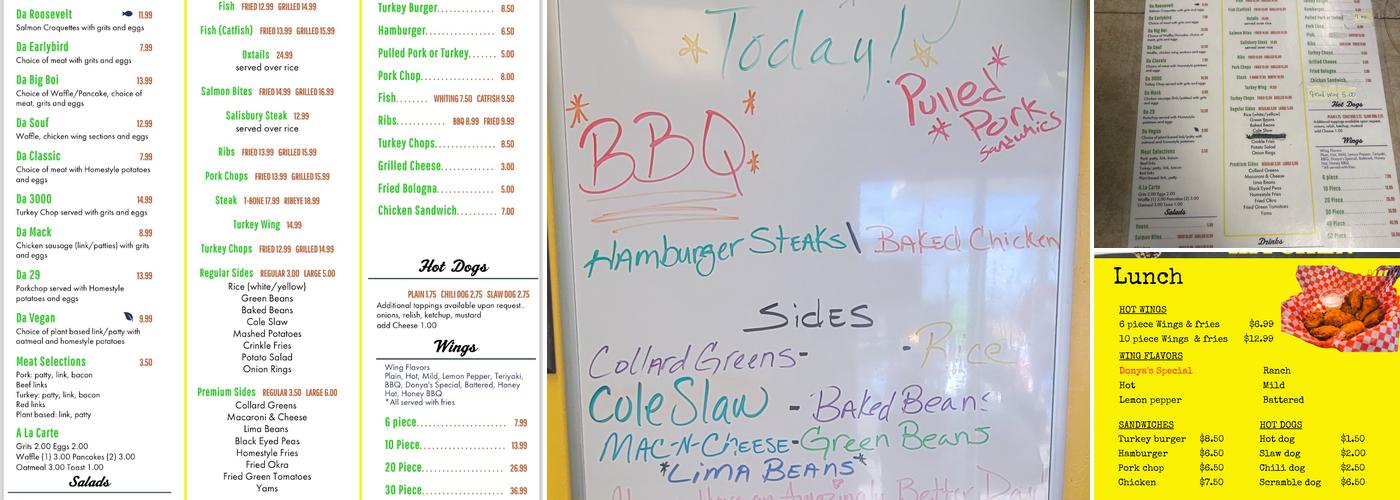 Da Roosevelt 11.99
Salmon Croquettes with grits and eggs
Da Earlybird 7.99
Choice of meat with grits and eggs
Da Big Boi 13.99
Choice of Waffle/Pancake, choice of
meat, grits and eggs
Da Souf 12.99
Waffle, chicken wing sections and eggs
Da Classic 7.99
Choice of meat with Homestyle potatoes
and eggs
Da 3000 14.99
Turkey Chop served with grits and eggs
Da Mack 8.99
Chicken sausage (link/patties) with grits
and eggs
Da 29 13.99
Porkchop served with Homestyle
potatoes and eggs
Da Vegan 9.99
Choice of plant based link/patty with
oatmeal and homestyle potatoes
Meat Selections 3.50
Pork: patty, link, bacon
Beef links
Turkey: patty, link, bacon
Red links
Plant based: link, patty
A La Carte
Grits 2.00 Eggs 2.00
Waffle (1) 3.00 Pancakes (2) 3.00
Oatmeal 3.00 Toast 1.00
Salads
Fish FRIED 12.99 GRILLED 14.99
Fish (Catfish) FRIED 13.99 GRILLED 15.99
Oxtails 24.99
served over rice
Salmon Bites FRIED 14.99 GRILLED 16.99
Salisbury Steak 12.99
served over rice
Ribs FRIED 13.99 GRILLED 15.99
Pork Chops FRIED 13.99 GRILLED 15.99
Steak T-BONE 17.99 RIBEYE 18.99
Turkey Wing 14.99
Turkey Chops FRIED 12.99 GRILLED 14.99
Regular Sides REGULAR 3.00 LARGE 5.00
Rice (white/yellow)
Green Beans
Baked Beans
Cole Slaw
Mashed Potatoes
Crinkle Fries
Potato Salad
Onion Rings
Premium Sides REGULAR 3.50 LARGE 6.00
Collard Greens
Macaroni & Cheese
Lima Beans
Black Eyed Peas
Homestyle Fries
Fried Okra
Fried Green Tomatoes
Yams
Turkey Burger 8.50
Hamburger 6.50
Pulled Pork or Turkey 5.00
Pork Chop 8.00
Fish WHITING 7.50 CATFISH 9.50
Ribs BBQ 8.99 FRIED 9.99
Turkey Chops 8.50
Grilled Cheese 3.00
Fried Bologna 5.00
Chicken Sandwich 7.00
Hot Dogs
PLAIN 1.75 CHILI DOG 2.75 SLAW DOG 2.75
Additional toppings available upon request..
onions, relish, ketchup, mustard
add Cheese 1.00
Wings
Wing Flavors
Plain, Hot, Mild, Lemon Pepper, Teriyaki,
BBQ, Donya's Special, Battered, Honey
Hot, Honey BBQ
*All served with fries
6 piece 7.99
10 Piece 13.99
20 Piece 26.99
30 Piece 36.99
Today!
BBQ
Pulled
Pork
Hamburger Steaks \ Baked Chicken
Sides
Collard Greens - - Rice
Cole Slaw - Baked Beans
Mac-N-Cheese - Green Beans
*Lima Beans*
Better Day
Da 3000
Da Mack
Da 29
Da Vegan
Meat Selections
A La Carte
Salads
Regular Sides
Rice (white/yellow)
Green Beans
Baked Beans
Cole Slaw
Crinkle Fries
Potato Salad
Onion Rings
Premium Sides
Collard Greens
Macaroni & Cheese
Lima Beans
Black Eyed Peas
Homestyle Fries
Fried Okra
Fried Green Tomatoes
Yams
Drinks
Hot Dogs
Wings
6 piece
10 Piece
20 Piece
30 Piece
Lunch
HOT WINGS
6 piece Wings & fries $6.99
10 piece Wings & fries $12.99
WING FLAVORS
Donya's Special Ranch
Hot Mild
Lemon pepper Battered
SANDWICHES HOT DOGS
Turkey burger $8.50 Hot dog $1.50
Hamburger $6.50 Slaw dog $2.00
Pork chop $6.50 Chili dog $2.50
Chicken $7.50 Scramble dog $6.50